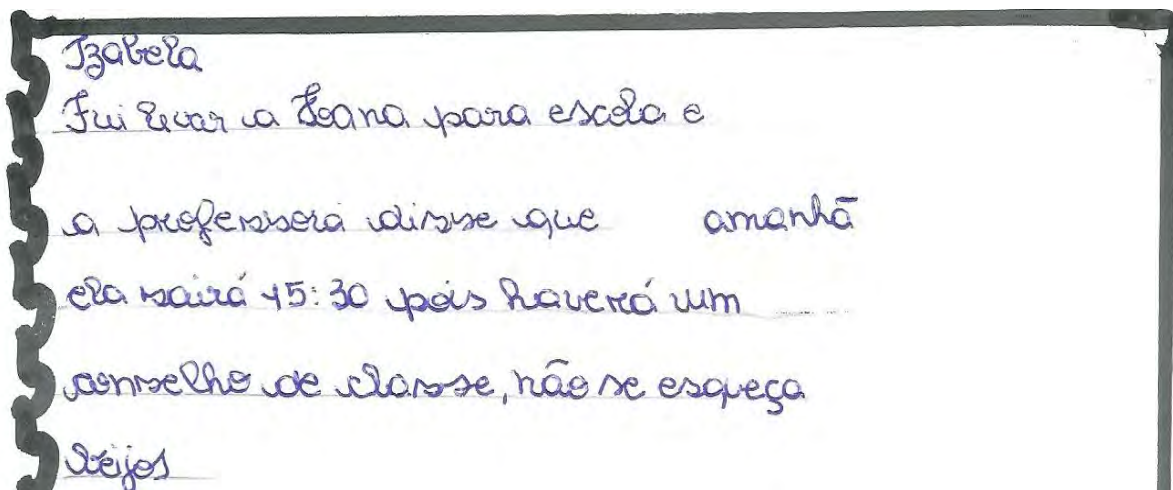 Izabela
Fui levar a Joana para escola e
a professora disse que amanhã
ela sairá 15:30 pois haverá um
conselho de classe, não se esqueça
Beijos